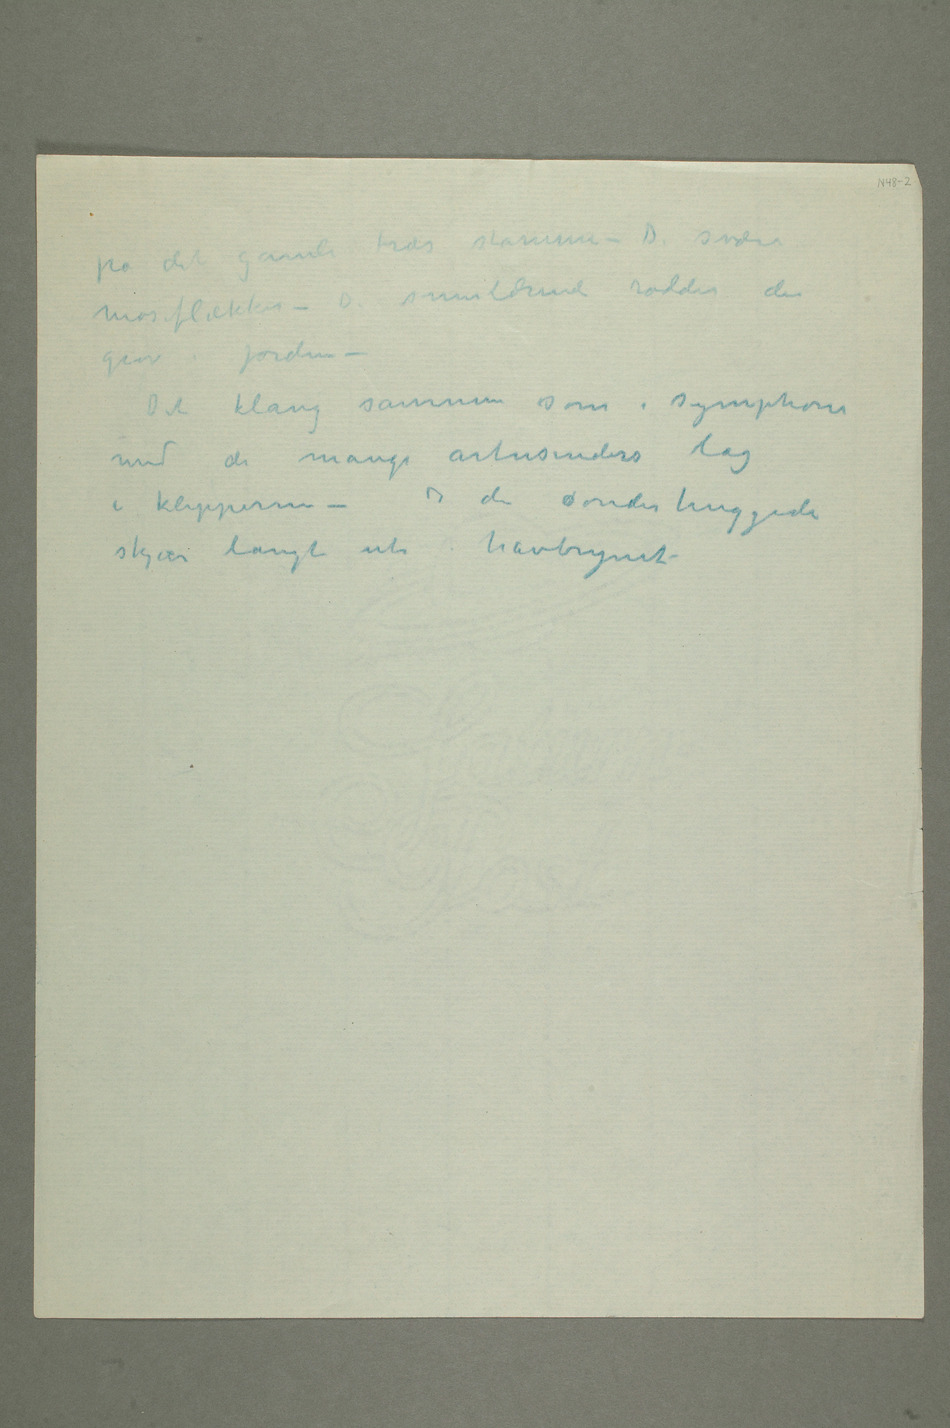 N48-2
på det gamle træs stamme – D. svære
moseflækker – D. smuldrende rødder der
grov i jorden –
Det klang sammen som i symphoni
med de mange artusinders lag
i klipperne – D de sønderhuggede
skjær langt ute i havbrynet